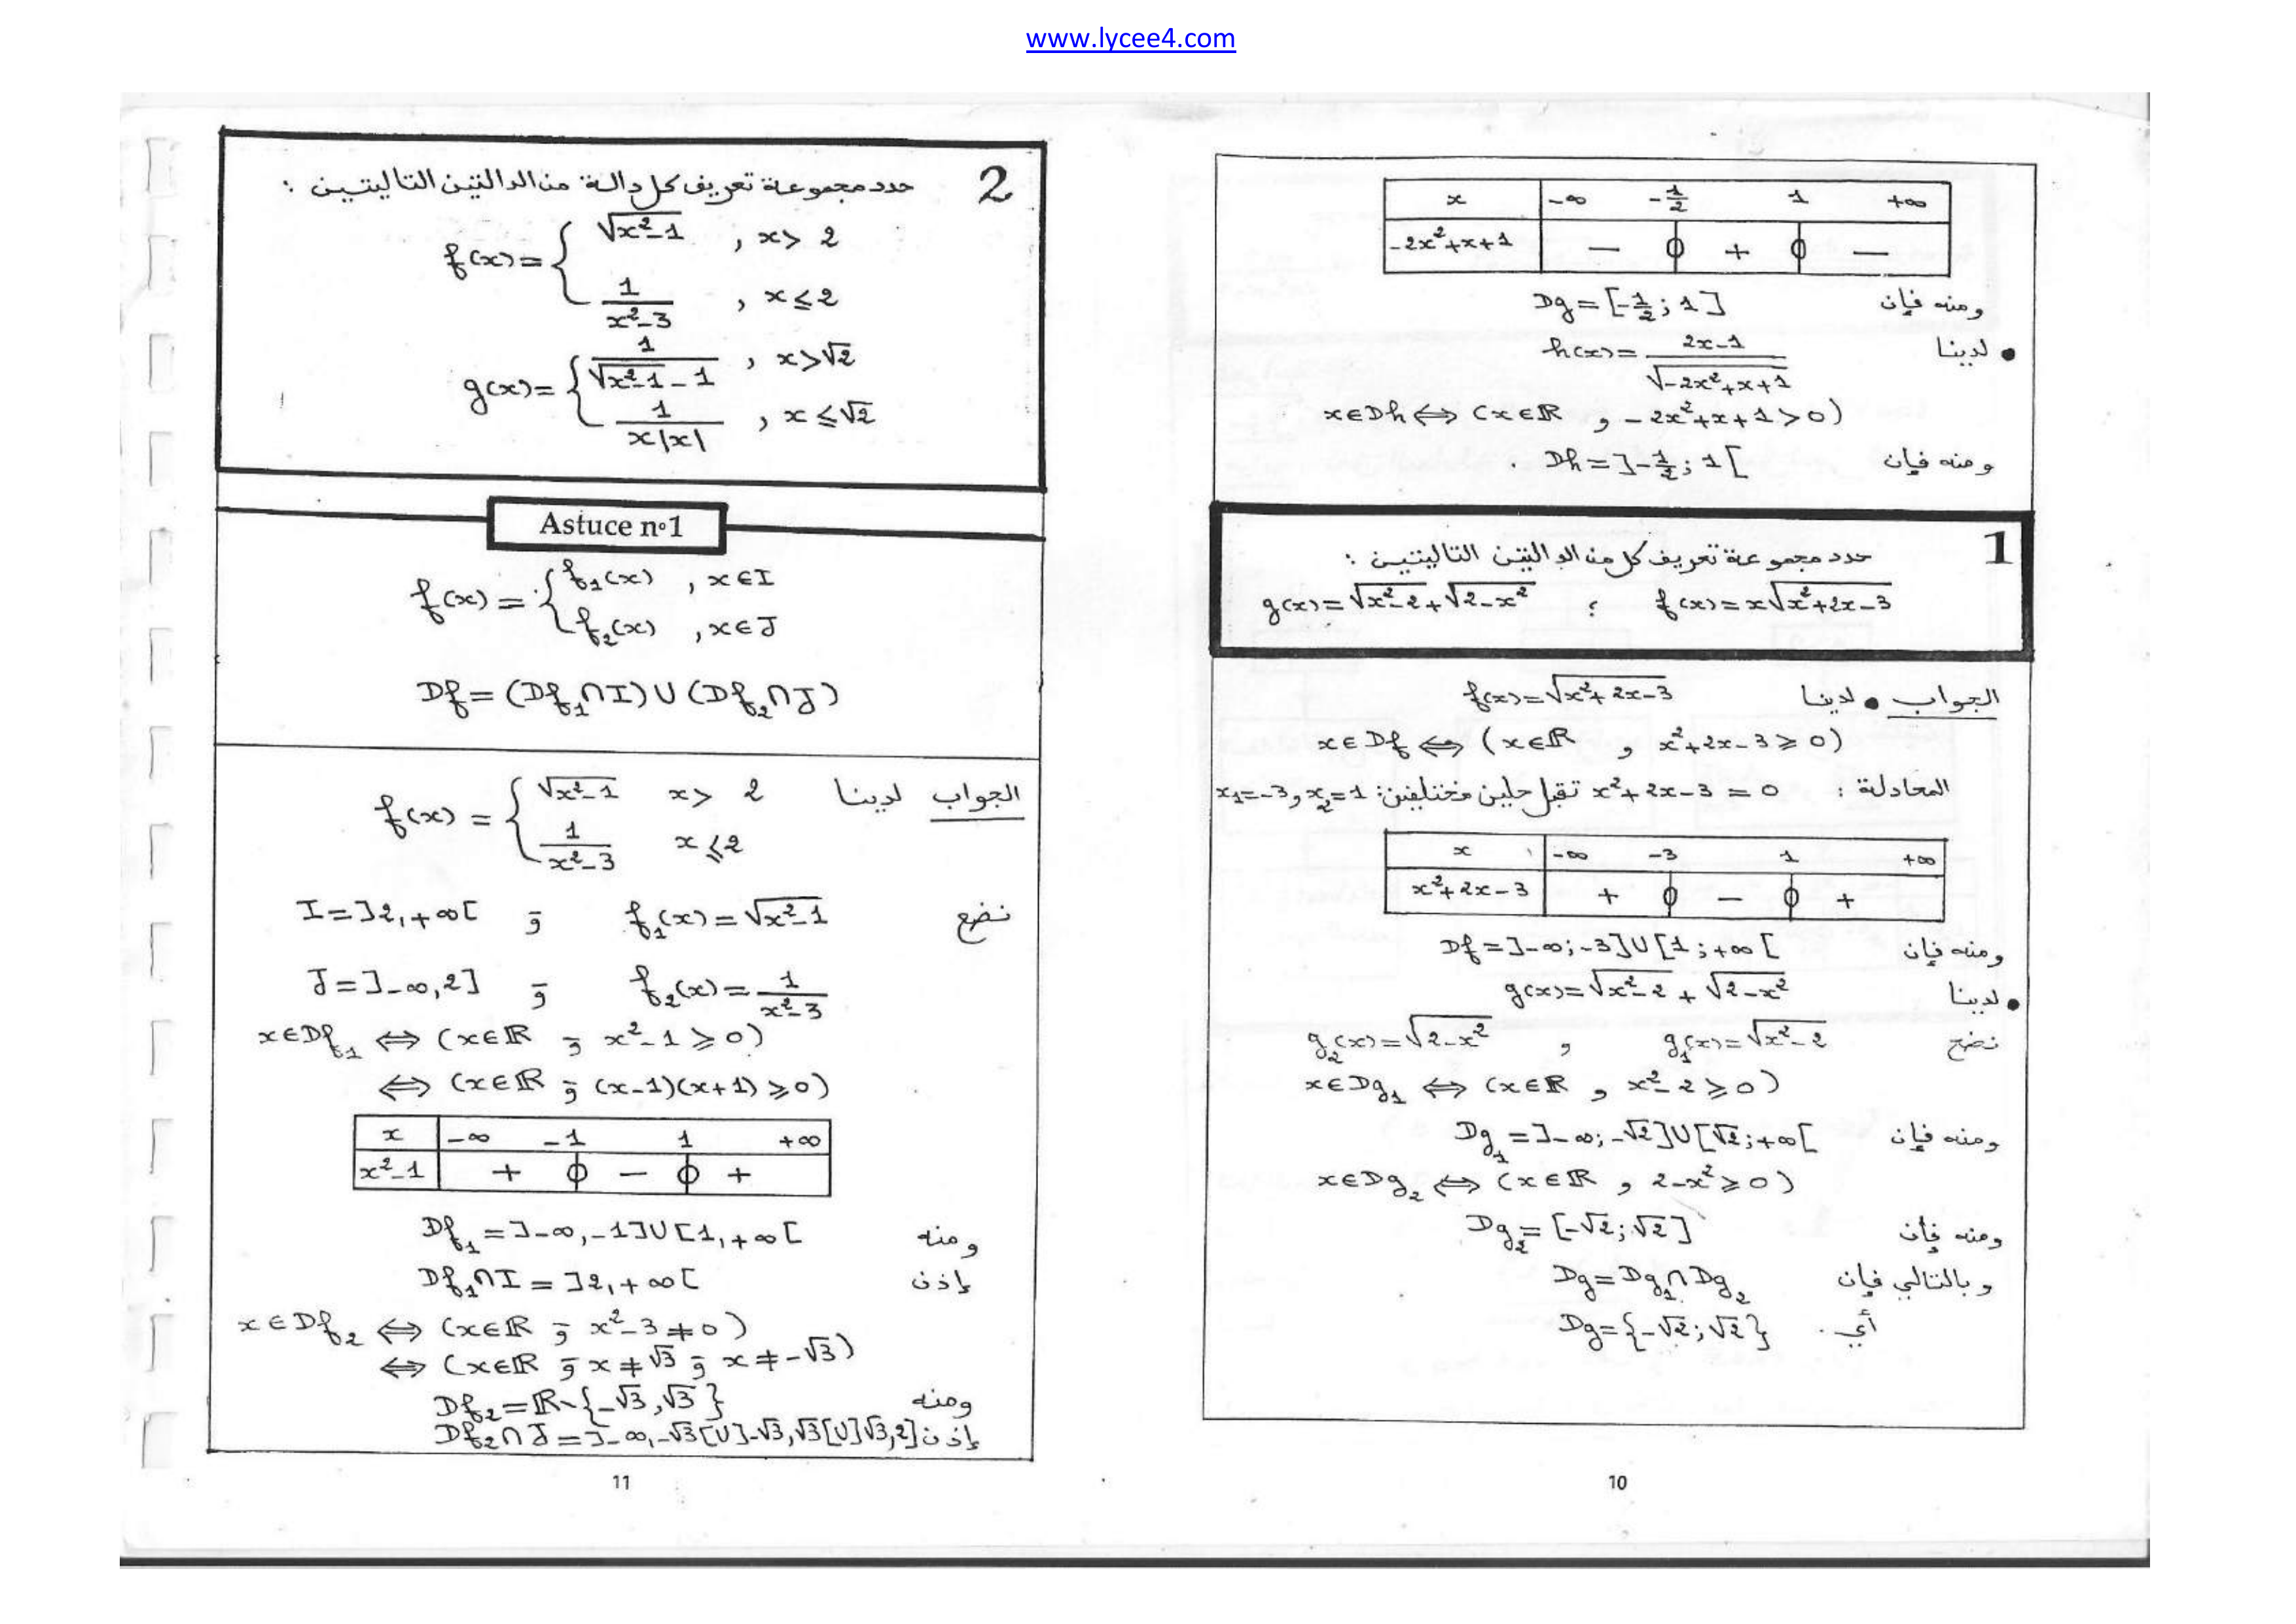 www.lycee4.com
x -∞ -1/2 1 +∞
-2x²+x+1 − 0 + 0 −
ومنه فإن Dg = [-1/2 ; 1]
• لدينا h(x) = (2x-1)/√(-2x²+x+1)
x∈Dh ⇔ (x∈ℝ و -2x²+x+1 > 0)
ومنه فإن Dh = ]-1/2 ; 1[ .
1 حدد مجموعة تعريف كل من الدالتين التاليتين :
f(x) = x√(x²+2x-3) ؛ g(x) = √(x²-2) + √(2-x²)
الجواب • لدينا f(x) = √(x²+2x-3)
x∈Df ⇔ (x∈ℝ و x²+2x-3 ⩾ 0)
المعادلة : x²+2x-3 = 0 تقبل حلين مختلفين: x₁=-3 و x₂=1
x -∞ -3 1 +∞
x²+2x-3 + 0 − 0 +
ومنه فإن Df = ]-∞ ; -3] ∪ [1 ; +∞[
• لدينا g(x) = √(x²-2) + √(2-x²)
نضع g₁(x) = √(x²-2) و g₂(x) = √(2-x²)
x∈Dg₁ ⇔ (x∈ℝ و x²-2 ⩾ 0)
ومنه فإن Dg₁ = ]-∞ ; -√2] ∪ [√2 ; +∞[
x∈Dg₂ ⇔ (x∈ℝ و 2-x² ⩾ 0)
ومنه فإن Dg₂ = [-√2 ; √2]
وبالتالي فإن Dg = Dg₁ ∩ Dg₂
أي . Dg = {-√2 ; √2}
10
2 حدد مجموعة تعريف كل دالة من الدالتين التاليتين :
f(x) = { √(x²-1) , x > 2
1/(x²-3) , x ⩽ 2
g(x) = { 1/(√(x²-1) - 1) , x > √2
1/(x|x|) , x ⩽ √2
Astuce n°1
f(x) = { f₁(x) , x∈I
f₂(x) , x∈J
Df = (Df₁∩I) ∪ (Df₂∩J)
الجواب لدينا f(x) = { √(x²-1) x > 2
1/(x²-3) x ⩽ 2
نضع f₁(x) = √(x²-1) و I = ]2, +∞[
f₂(x) = 1/(x²-3) و J = ]-∞, 2]
x∈Df₁ ⇔ (x∈ℝ و x²-1 ⩾ 0)
⇔ (x∈ℝ و (x-1)(x+1) ⩾ 0)
x -∞ -1 1 +∞
x²-1 + 0 − 0 +
ومنه Df₁ = ]-∞, -1] ∪ [1, +∞[
إذن Df₁∩I = ]2, +∞[
x∈Df₂ ⇔ (x∈ℝ و x²-3 ≠ 0)
⇔ (x∈ℝ و x ≠ √3 و x ≠ -√3)
ومنه Df₂ = ℝ \ {-√3, √3}
إذن Df₂∩J = ]-∞, -√3[ ∪ ]-√3, √3[ ∪ ]√3, 2]
11